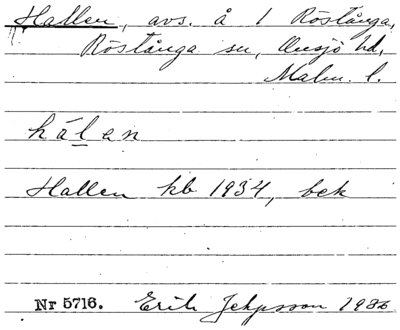 Hallen, avs. å 1 Röstånga,
Röstånga sn, Onsjö hd,
Malm. l.
hálen
Hallen kb 1934, bek
Nr 5716. Erik Jeppsson 1936